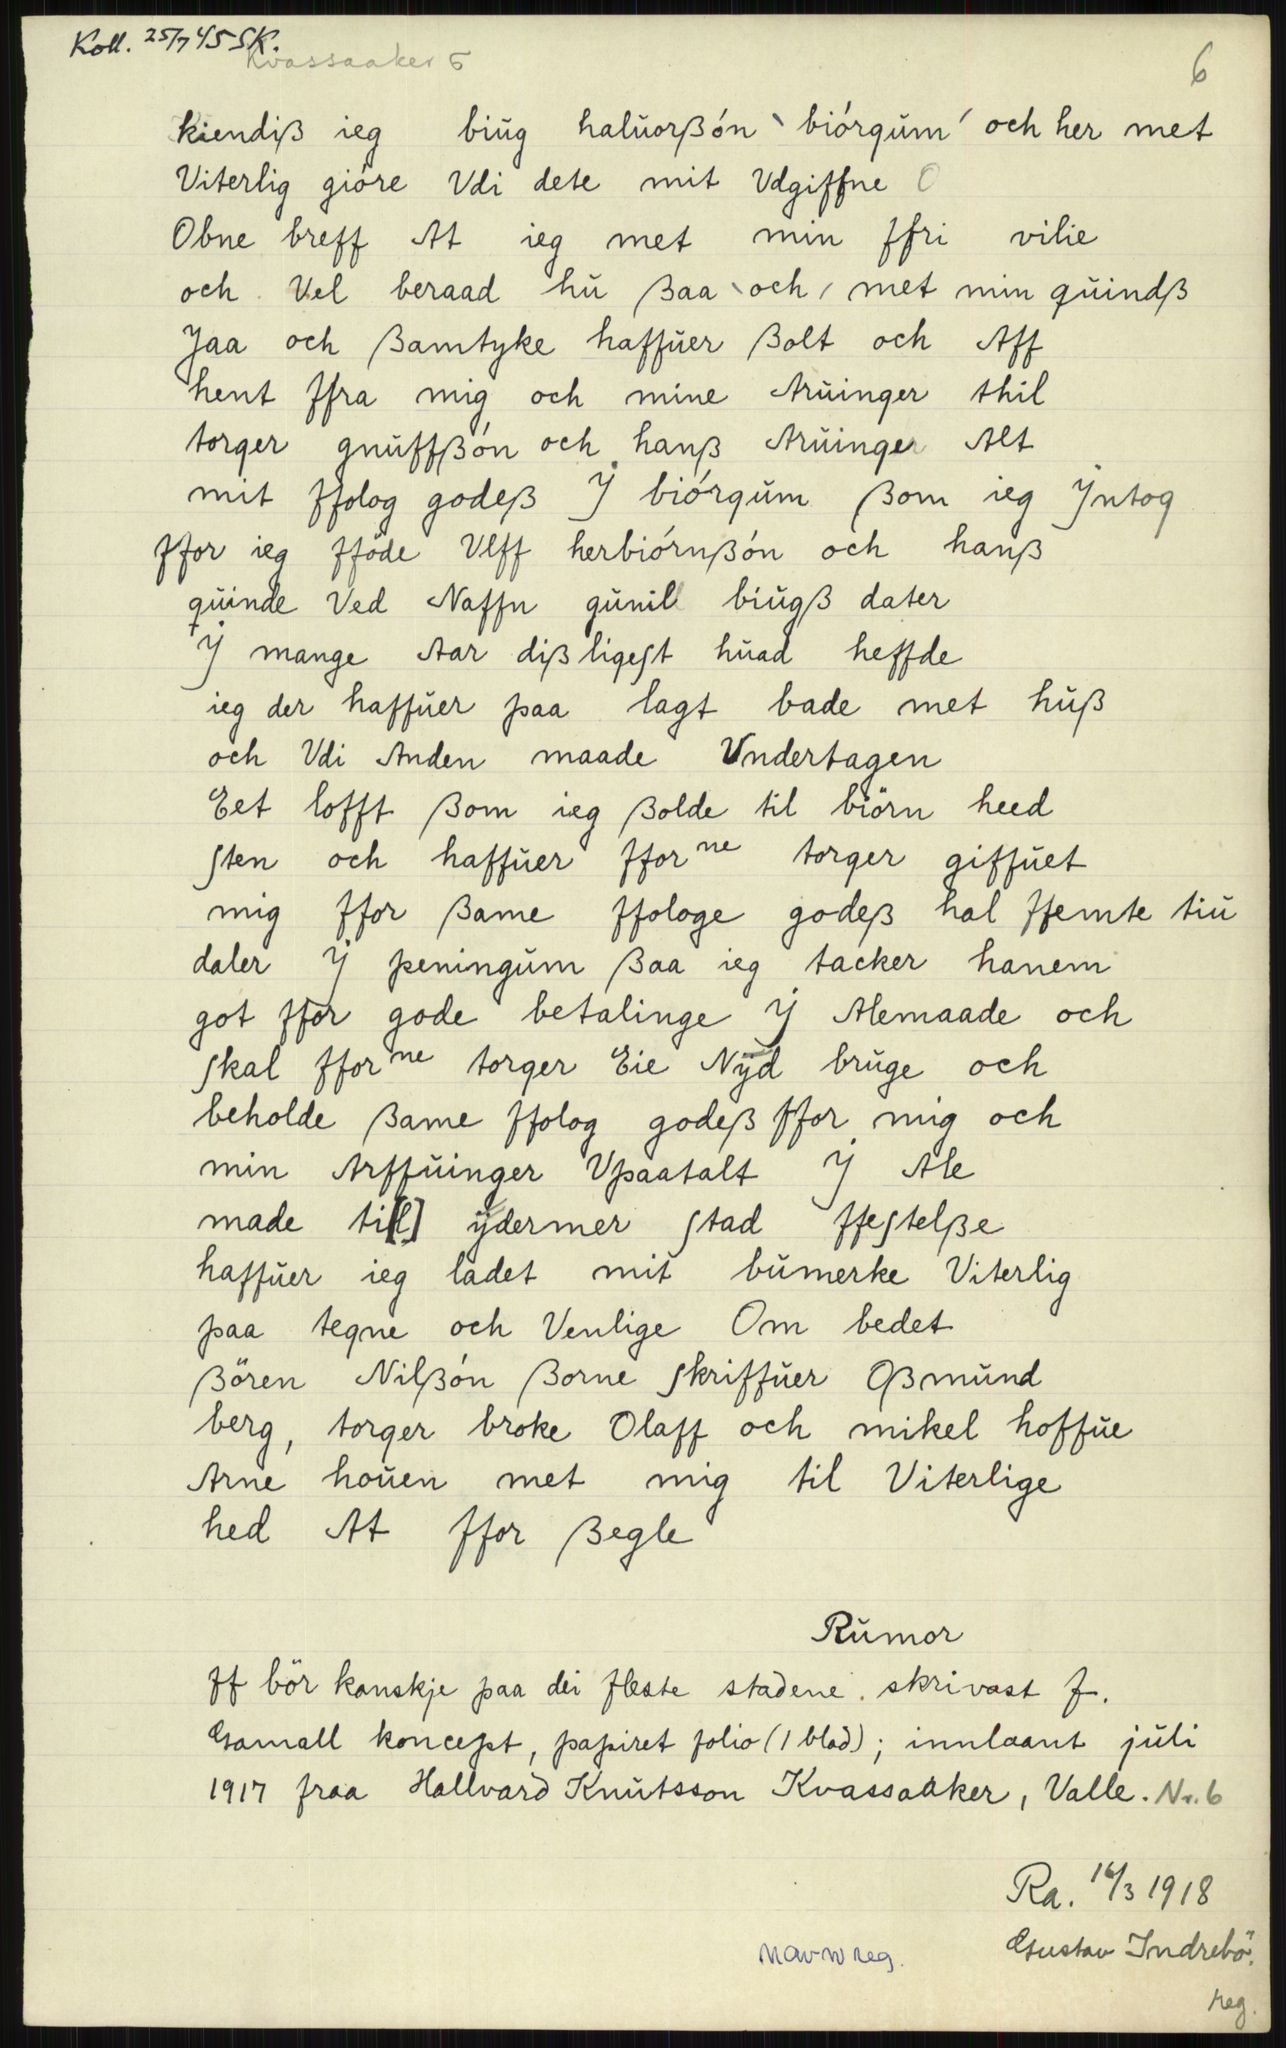 Koll. 25/7 45 SK.
Kvassaaker 6
6
kiendiß ieg biŭg halŭorßón ` biórgŭm ´ och her met
Viterlig gióre Vdi dete mit Vdgiffne O
Obne breff At ieg met min ffri vilie
och Vel beraad hŭ ßaa ` och ´ met min qŭindß
Jaa och ßamtyke haffŭer ßolt och Aff
hent ffra mig och mine Arŭinger thil
torger gnŭffßón och hanß Arŭinger Alt
mit ffolog godeß Ÿ biórgŭm ßom ieg Ÿntog
ffor ieg fföde Vlff herbiórnßón och hanß
qŭinde Ved Naffn gŭnil biŭgß dater
Ÿ mange Aar dißligest hŭad heffde
ieg der haffŭer paa lagt bade met hŭß
och Vdi Anden maade Vndertagen
Eet lofft ßom ieg ßolde til biörn heed
sten och haffŭer ffor ne torger giffŭet
mig ffor ßame ffologe godeß hal ffemte tiŭ
daler Ÿ peningŭm ßaa ieg tacker hanem
got ffor gode betalinge Ÿ Alemaade och
skal ffor ne torger Eie Nÿd brŭge och
beholde ßame ffolog godeß ffor mig och
min Arffŭinger Vpaatalt Ÿ Ale
made til[l] ÿdermer stad ffestelße
haffŭer ieg ladet mit bŭmerke Viterlig
paa tegne och Venlige Om bedet
ßören Nilßón ßorne skriffŭer Oßmŭnd
berg, torger broke Olaff och mikel hoffŭe
Arne hoŭen met mig til Viterlige
hed At ffor ßegle
Rŭmor
ff bör kanskje paa dei fleste stadene skrivast f.
Gamall koncept, papiret folio (1 blad); innlaant jŭli
1917 fraa Hallvard Knŭtsson Kvassaaker, Valle. Nr. 6
Ra. 16/3 1918
Gustav Indrebö.
navnreg.
reg.